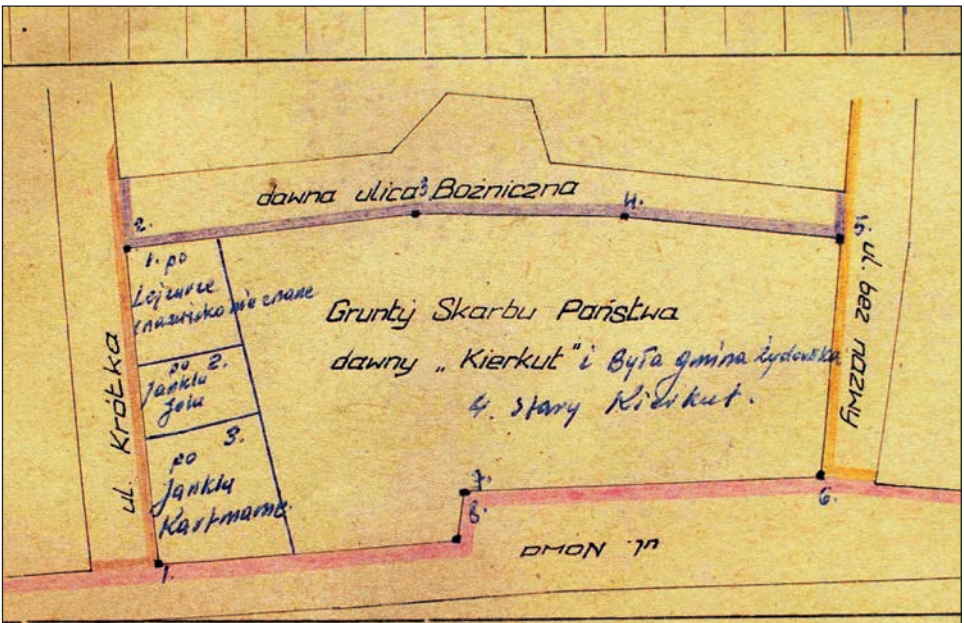 dawna ulica Bożniczna
3
4.
2.
5.
1. po
Lejzurze
(nazwisko nie znane
po 2.
Janklu
3.
po
Janklu
Gruntÿ Skarbu Państwa
dawny „Kierkut" i Była gmina żydowska
4. Stary Kierkut.
ul. Krótka
ul. bez nazwy
7.
8.
6.
1.
ul. Nowa